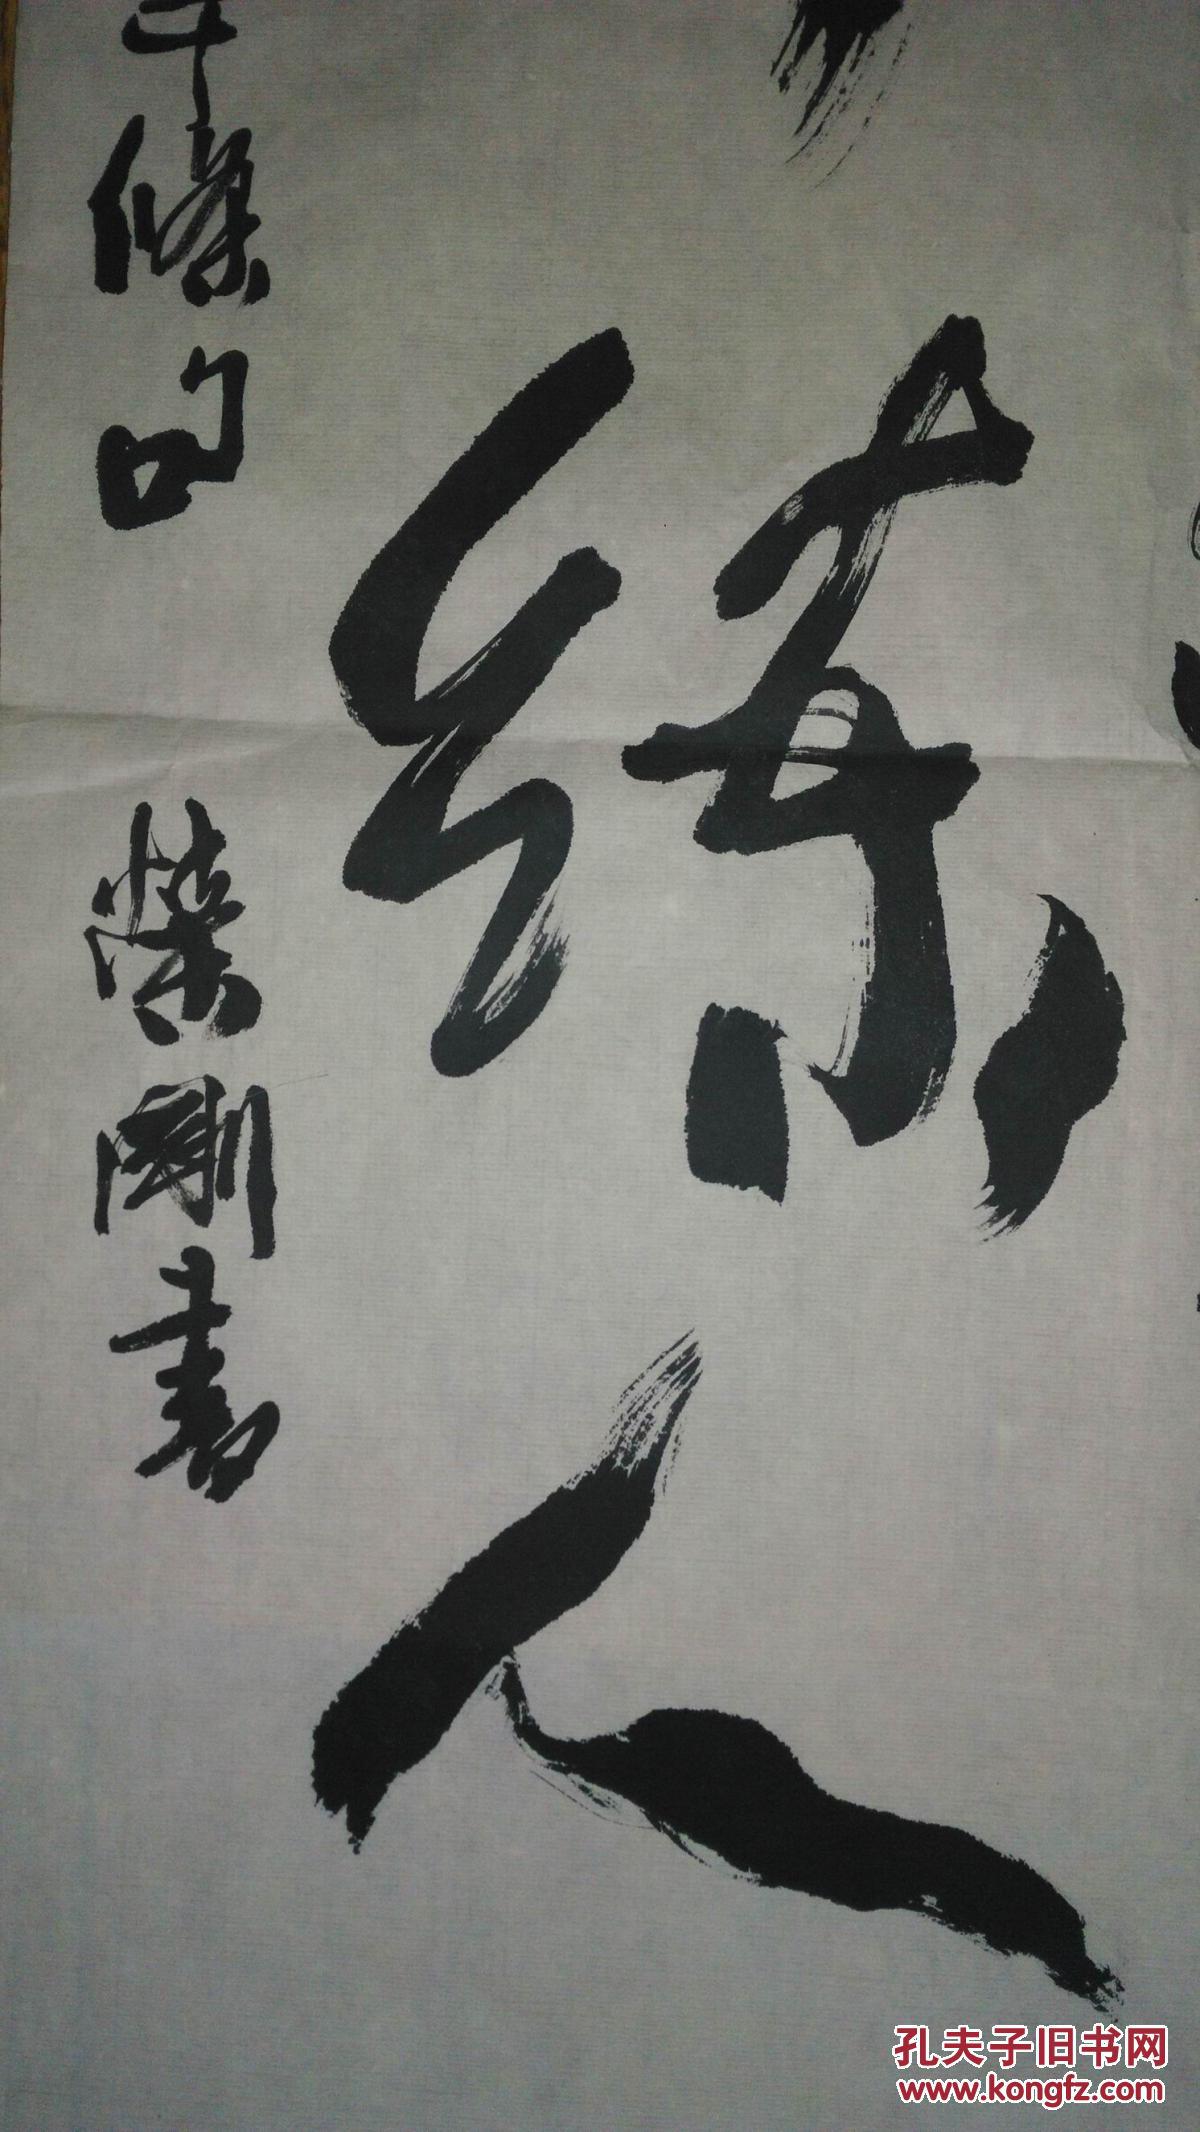 練人
條的 榮剛書
孔夫子旧书网
www.kongfz.com